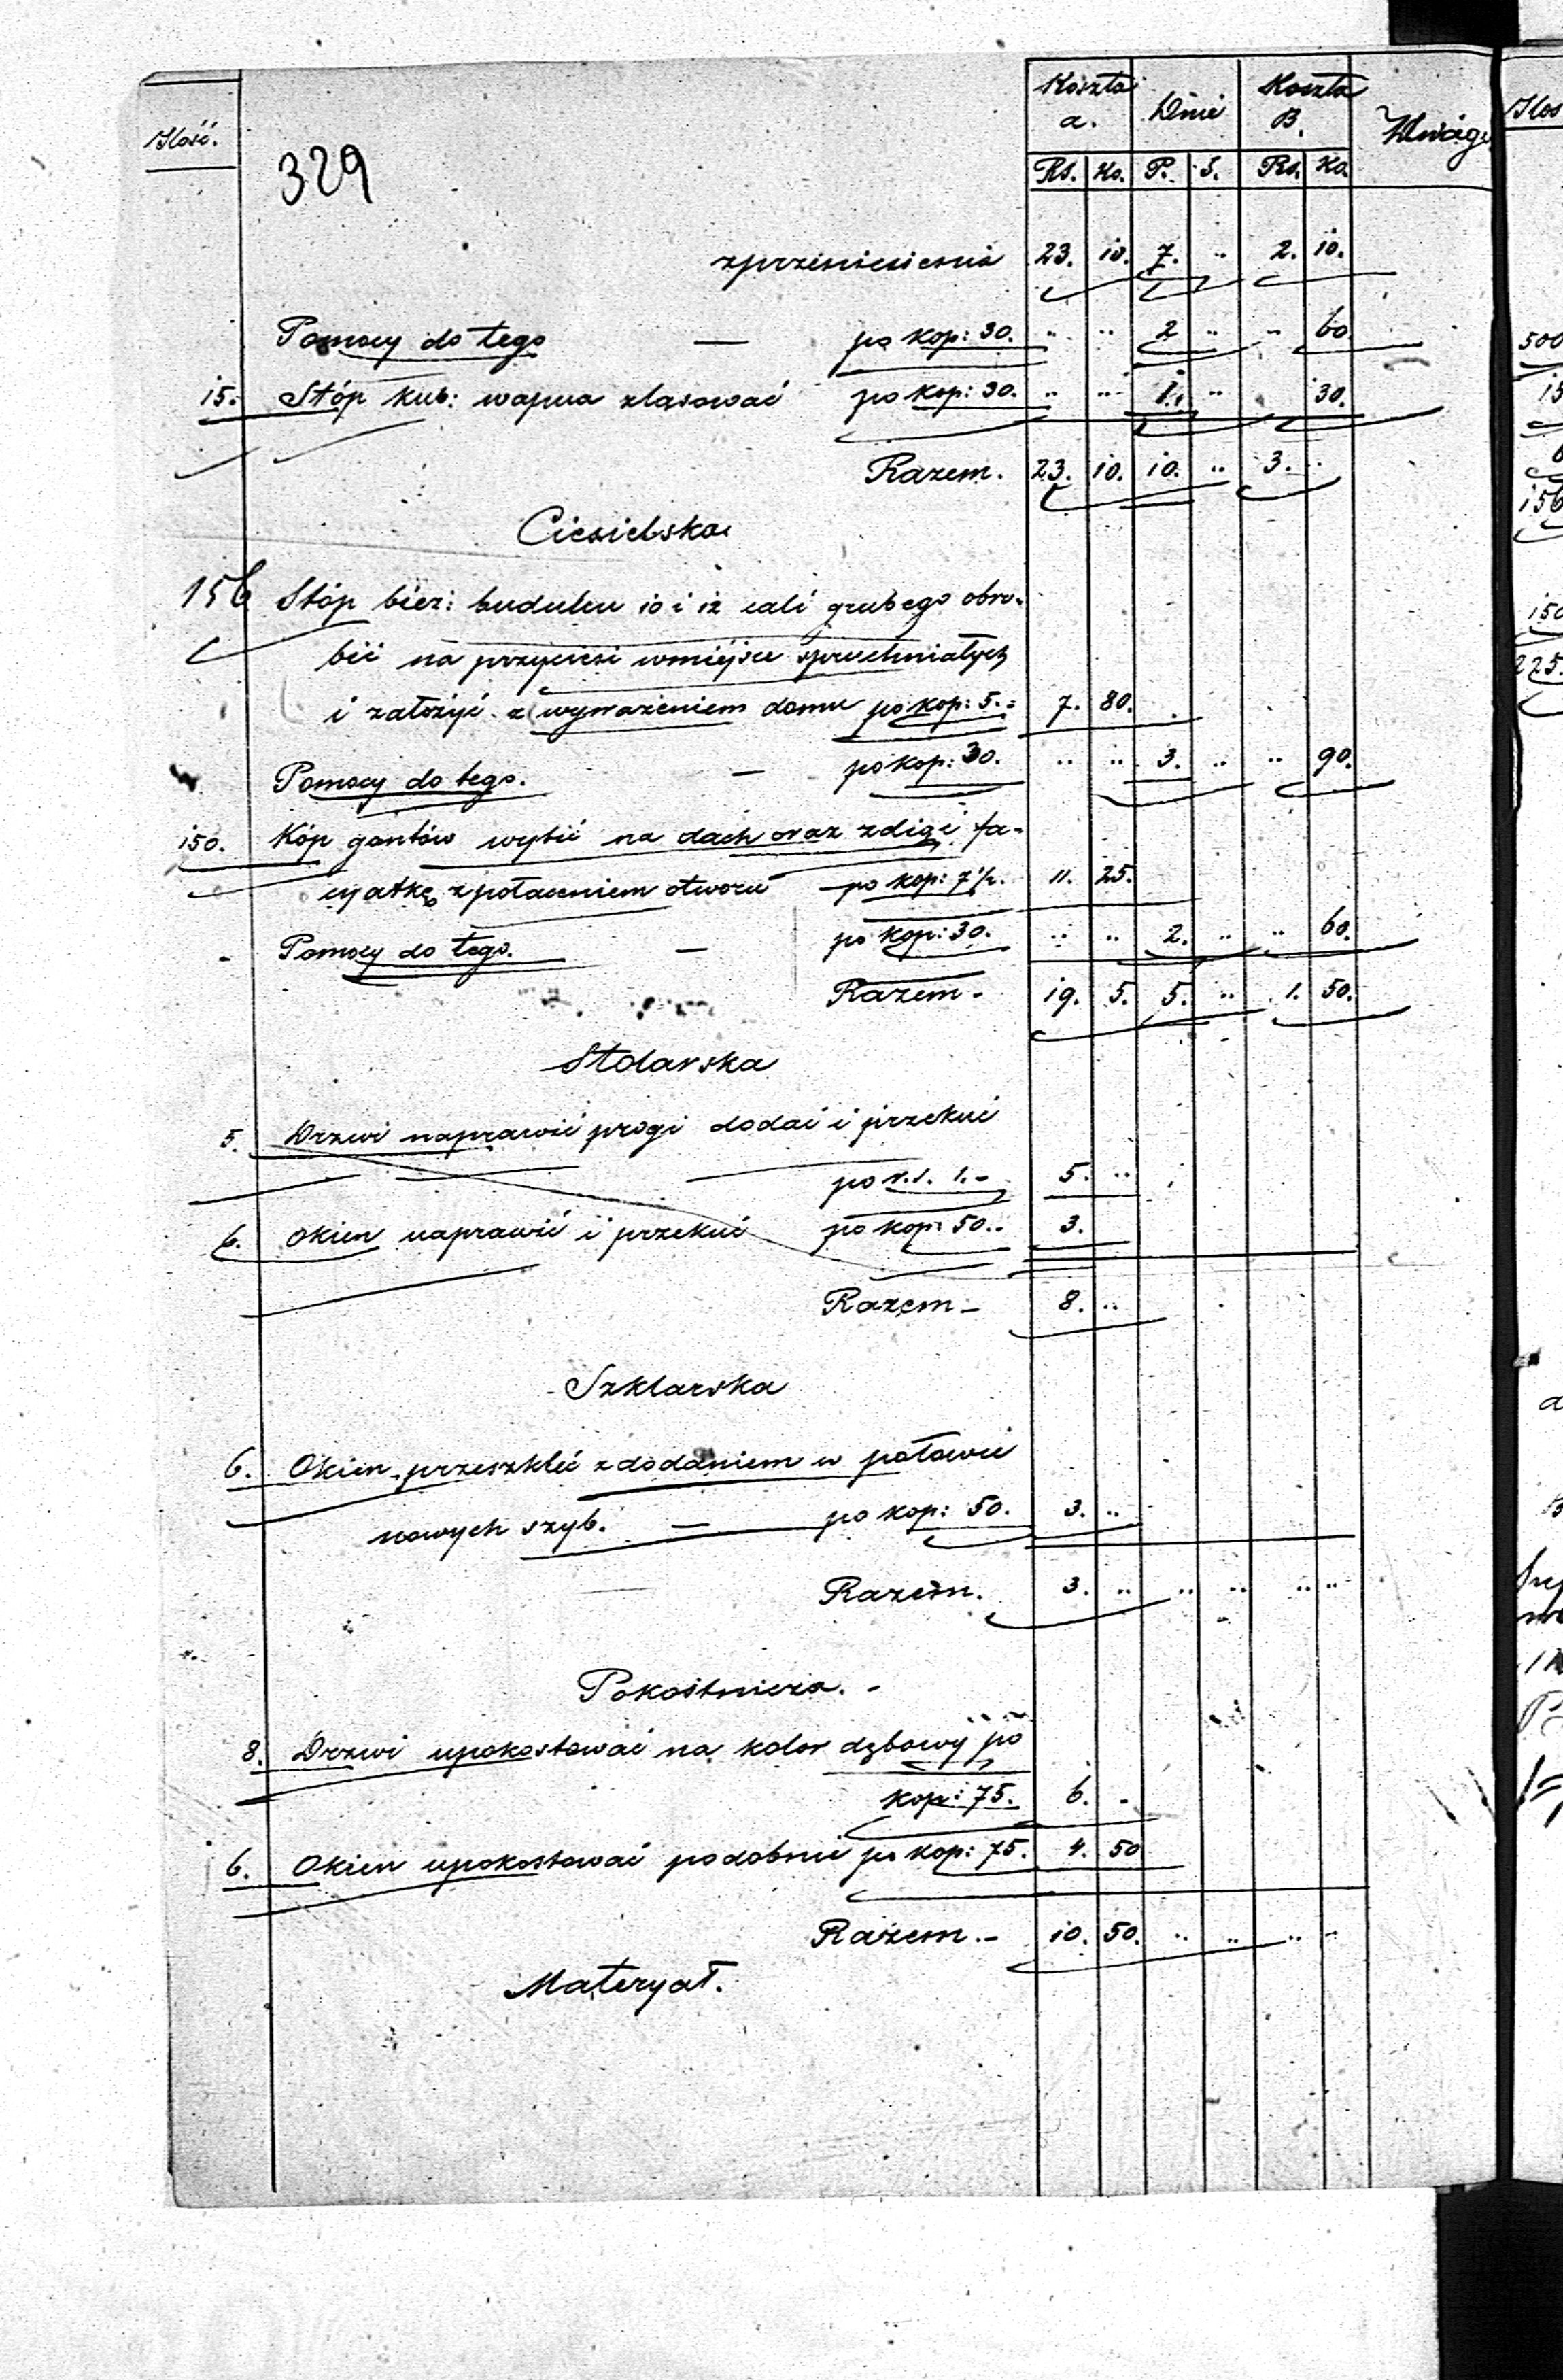 Ilość. Koszta a. Dnie Koszta B. Uwagi
Rs. Ko. P. S. Rs. Ko.
329
z przeniesienia 23. 10. 7. .. 2. 10.
Pomocy do tego — po kop: 30. .. .. 2 .. .. 60
15. Stóp kub: wapna zlasować po kop: 30. .. .. 1. .. 30.
Razem. 23. 10. 10. .. 3. ..
Ciesielska
156 Stóp bież: budulcu 10 i 12 cali grubego obro-
bić na przyciesi w miejsce spruchniałych
i założyć z wyważeniem domu po kop: 5.= 7. 80.
Pomocy do tego. — po kop: 30. .. .. 3. .. .. 90.
150. Kóp gontów wybić na dach oraz zdjąć fa-
cyatkę z połaceniem otworu po kop: 7 1/2. 11. 25.
- Pomocy do tego. — po kop: 30. .. .. 2. .. .. 60.
Razem - 19. 5. 5. .. 1. 50.
Stolarska
5. Drzwi naprawić progi dodać i przekuć
po r.s. 1.- 5. ..
6. Okien naprawić i przekuć po kop: 50.. 3.
Razem - 8. ..
Szklarska
6. Okien przeszklić z dodaniem w połowie
nowych szyb. — po kop: 50. 3. ..
Razem. 3. .. .. .. .. ..
Pokostnicza. -
8. Drzwi upokostować na kolor dębowy po
kop: 75. 6. -
6. Okien upokostować podobnie po kop: 75. 4. 50
Razem.- 10. 50. .. .. .. ..
Materyał.